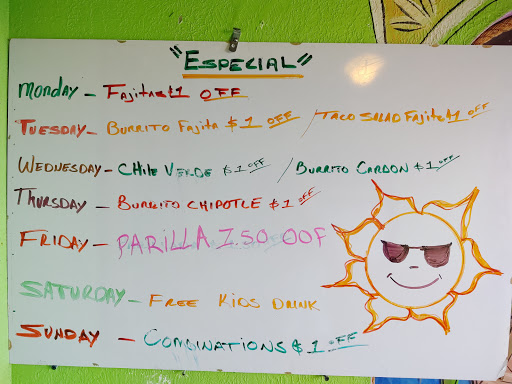 "ESPECIAL"
MONDAY - Fajitas $1 OFF
TUESDAY - BURRITO Fajita $1 OFF / TACO SALAD Fajita $1 OFF
WEDNESDAY - CHile VERDE $1 OFF / BURRITO CARBON $1 OFF
THURSDAY - BURRITO CHIPOTLE $1 OFF
FRIDAY - PARILLA 7.50 OOF
SATURDAY - FREE KIDS DRINK
SUNDAY - COMBINATIONS $1 OFF